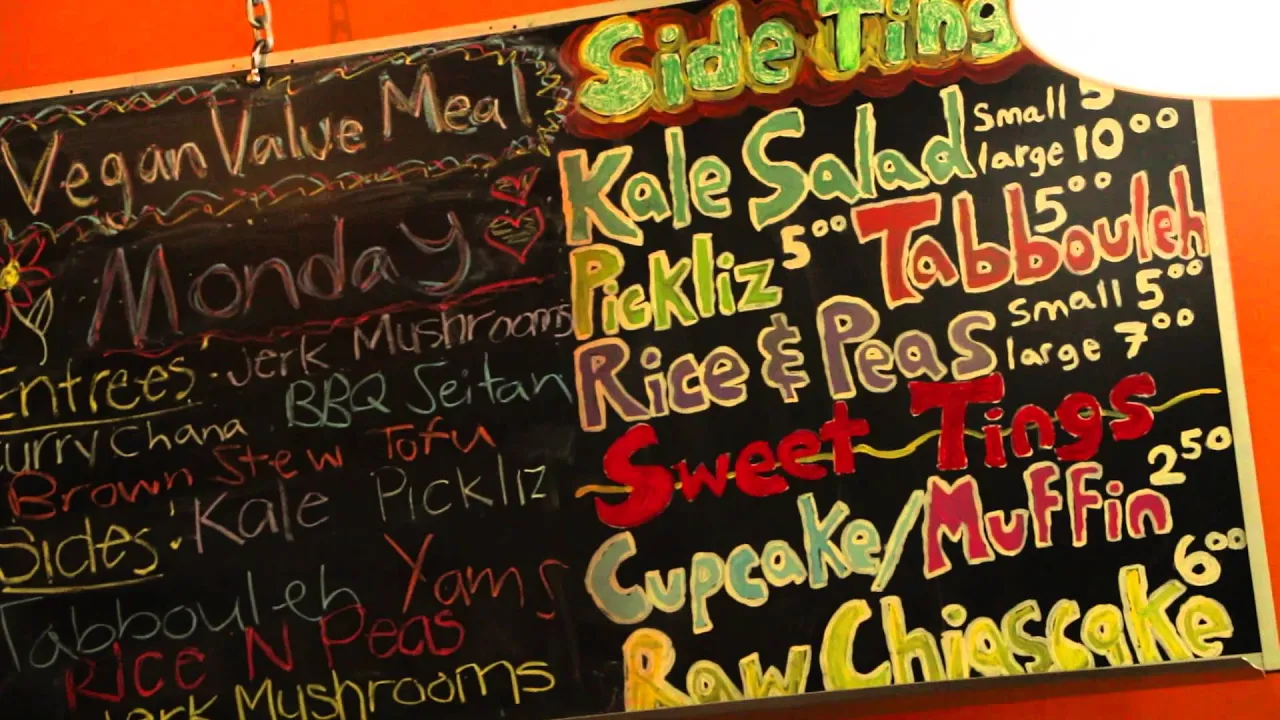 Vegan Value Meal
Monday
Entrees: Jerk Mushrooms
BBQ Seitan
Curry Chana
Brown Stew Tofu
Sides: Kale Pickliz
Tabbouleh Yams
Rice N Peas
Jerk Mushrooms
Side Ting
Kale Salad small 5 large 10.00
Pickliz 5.00 Tabbouleh 5.00
Rice & Peas small 5.00 large 7.00
Sweet Tings
Cupcake/Muffin 2.50
Raw Chiascake 6.00